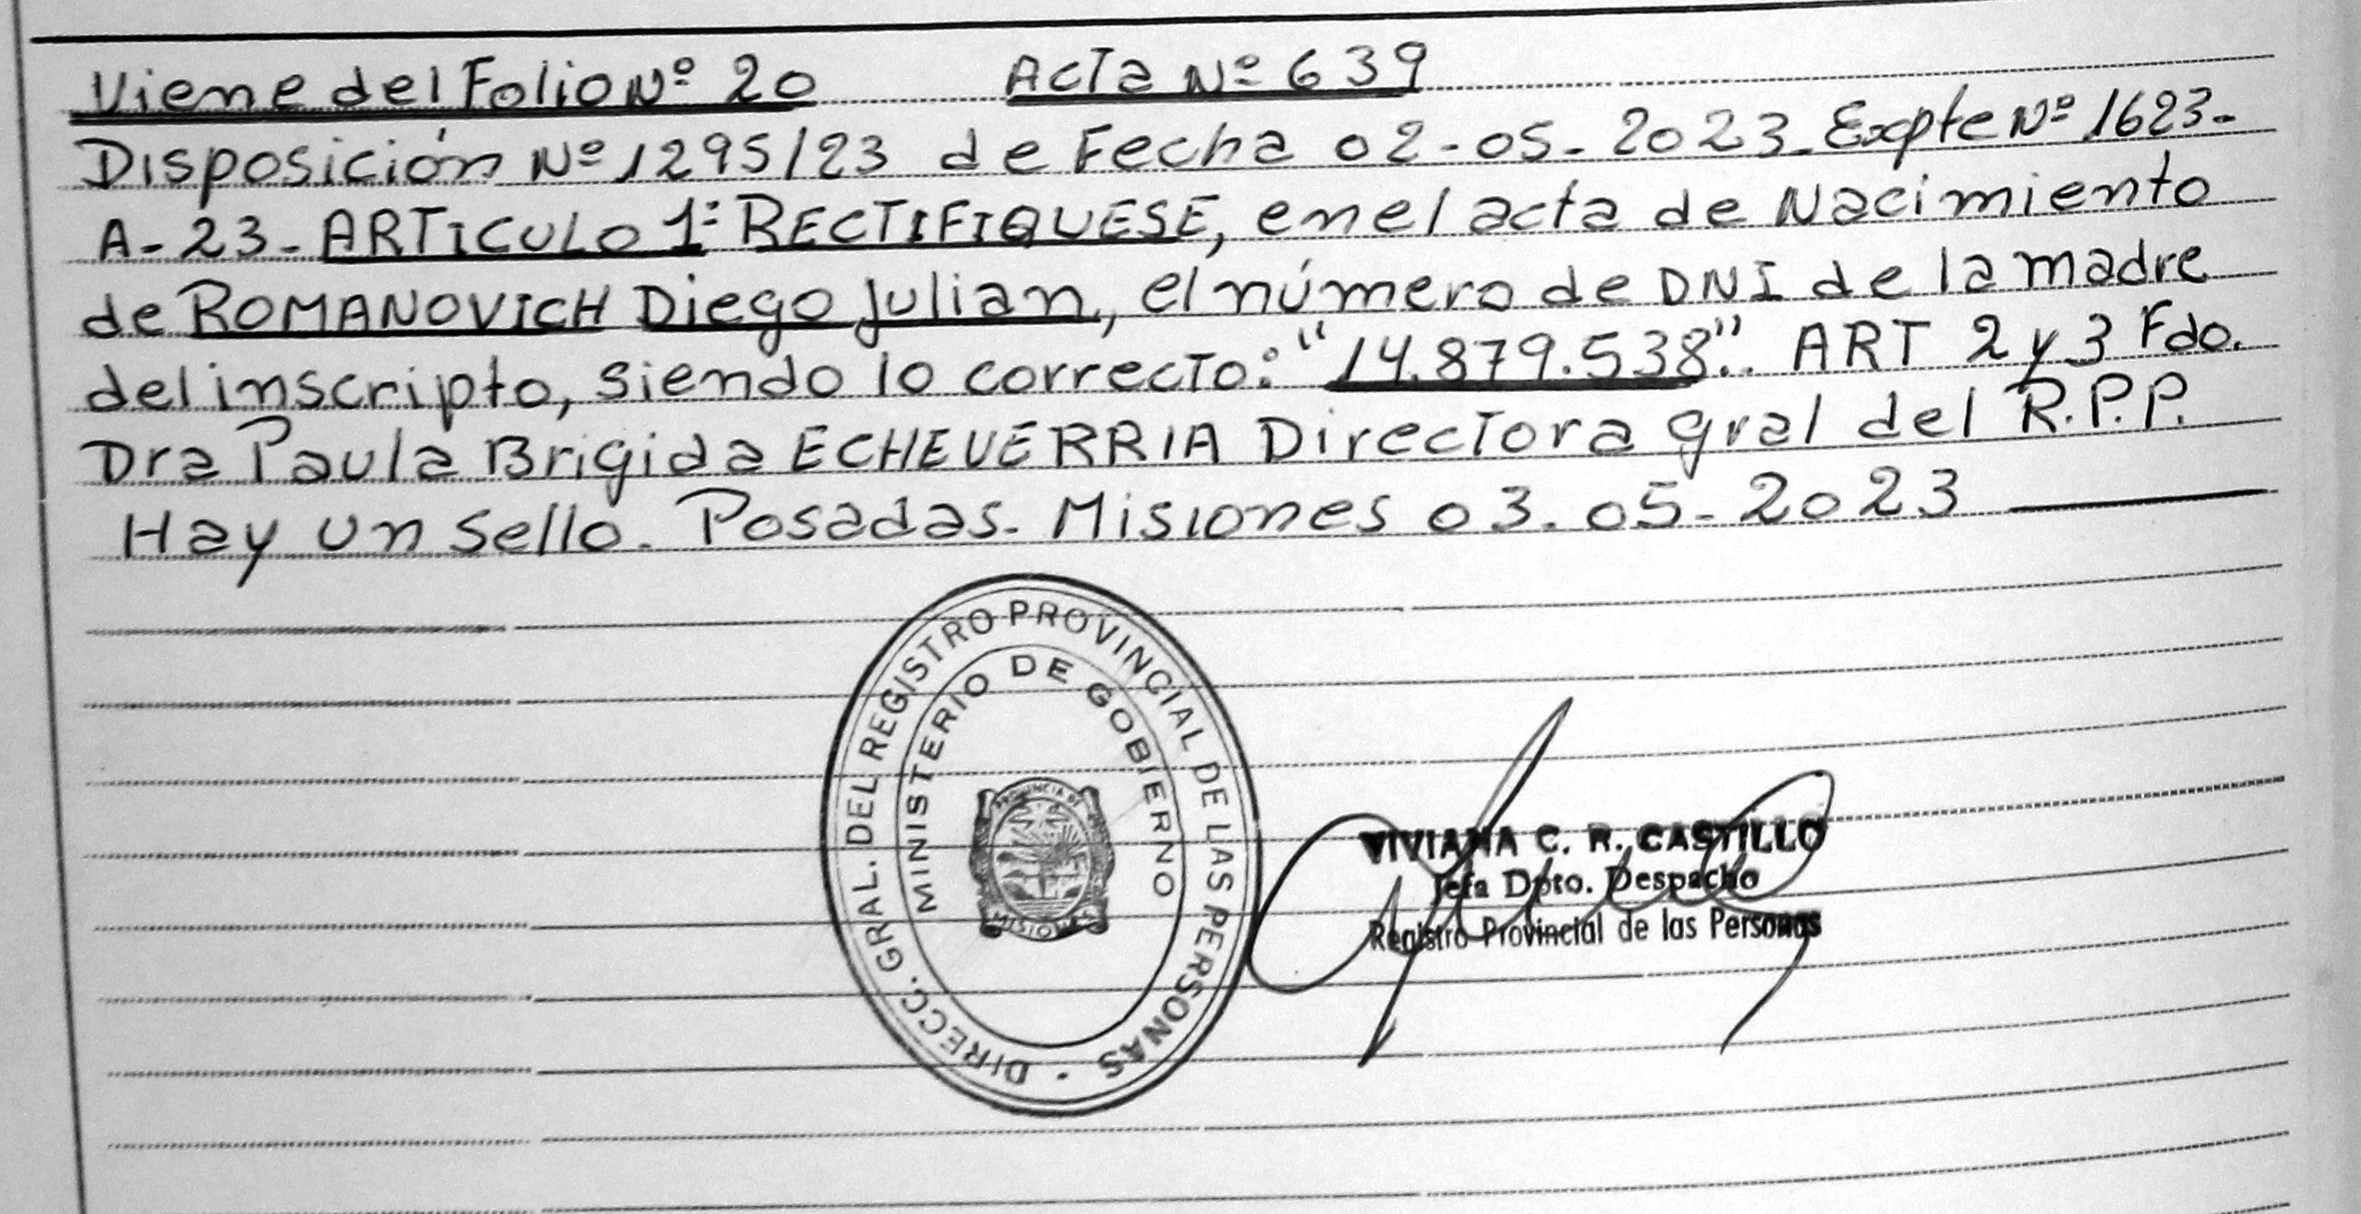 Viene del Folio Nº 20 Acta Nº 639
Disposición Nº 1295/23 de Fecha 02-05-2023. Expte Nº 1623-
A-23-ARTICULO 1º RECTIFIQUESE, en el acta de Nacimiento
de ROMANOVICH Diego Julian, el número de DNI de la madre
del inscripto, siendo lo correcto: "14.879.538". ART 2 y 3 Fdo.
Dra Paula Brigida ECHEVERRIA Directora gral del R.P.P.
Hay un sello. Posadas. Misiones 03.05-2023
DIRECC. GRAL. DEL REGISTRO PROVINCIAL DE LAS PERSONAS
MINISTERIO DE GOBIERNO
PROVINCIA DE
MISIONES
VIVIANA C. R. CASTILLO
Jefa Dpto. Despacho
Registro Provincial de las Personas